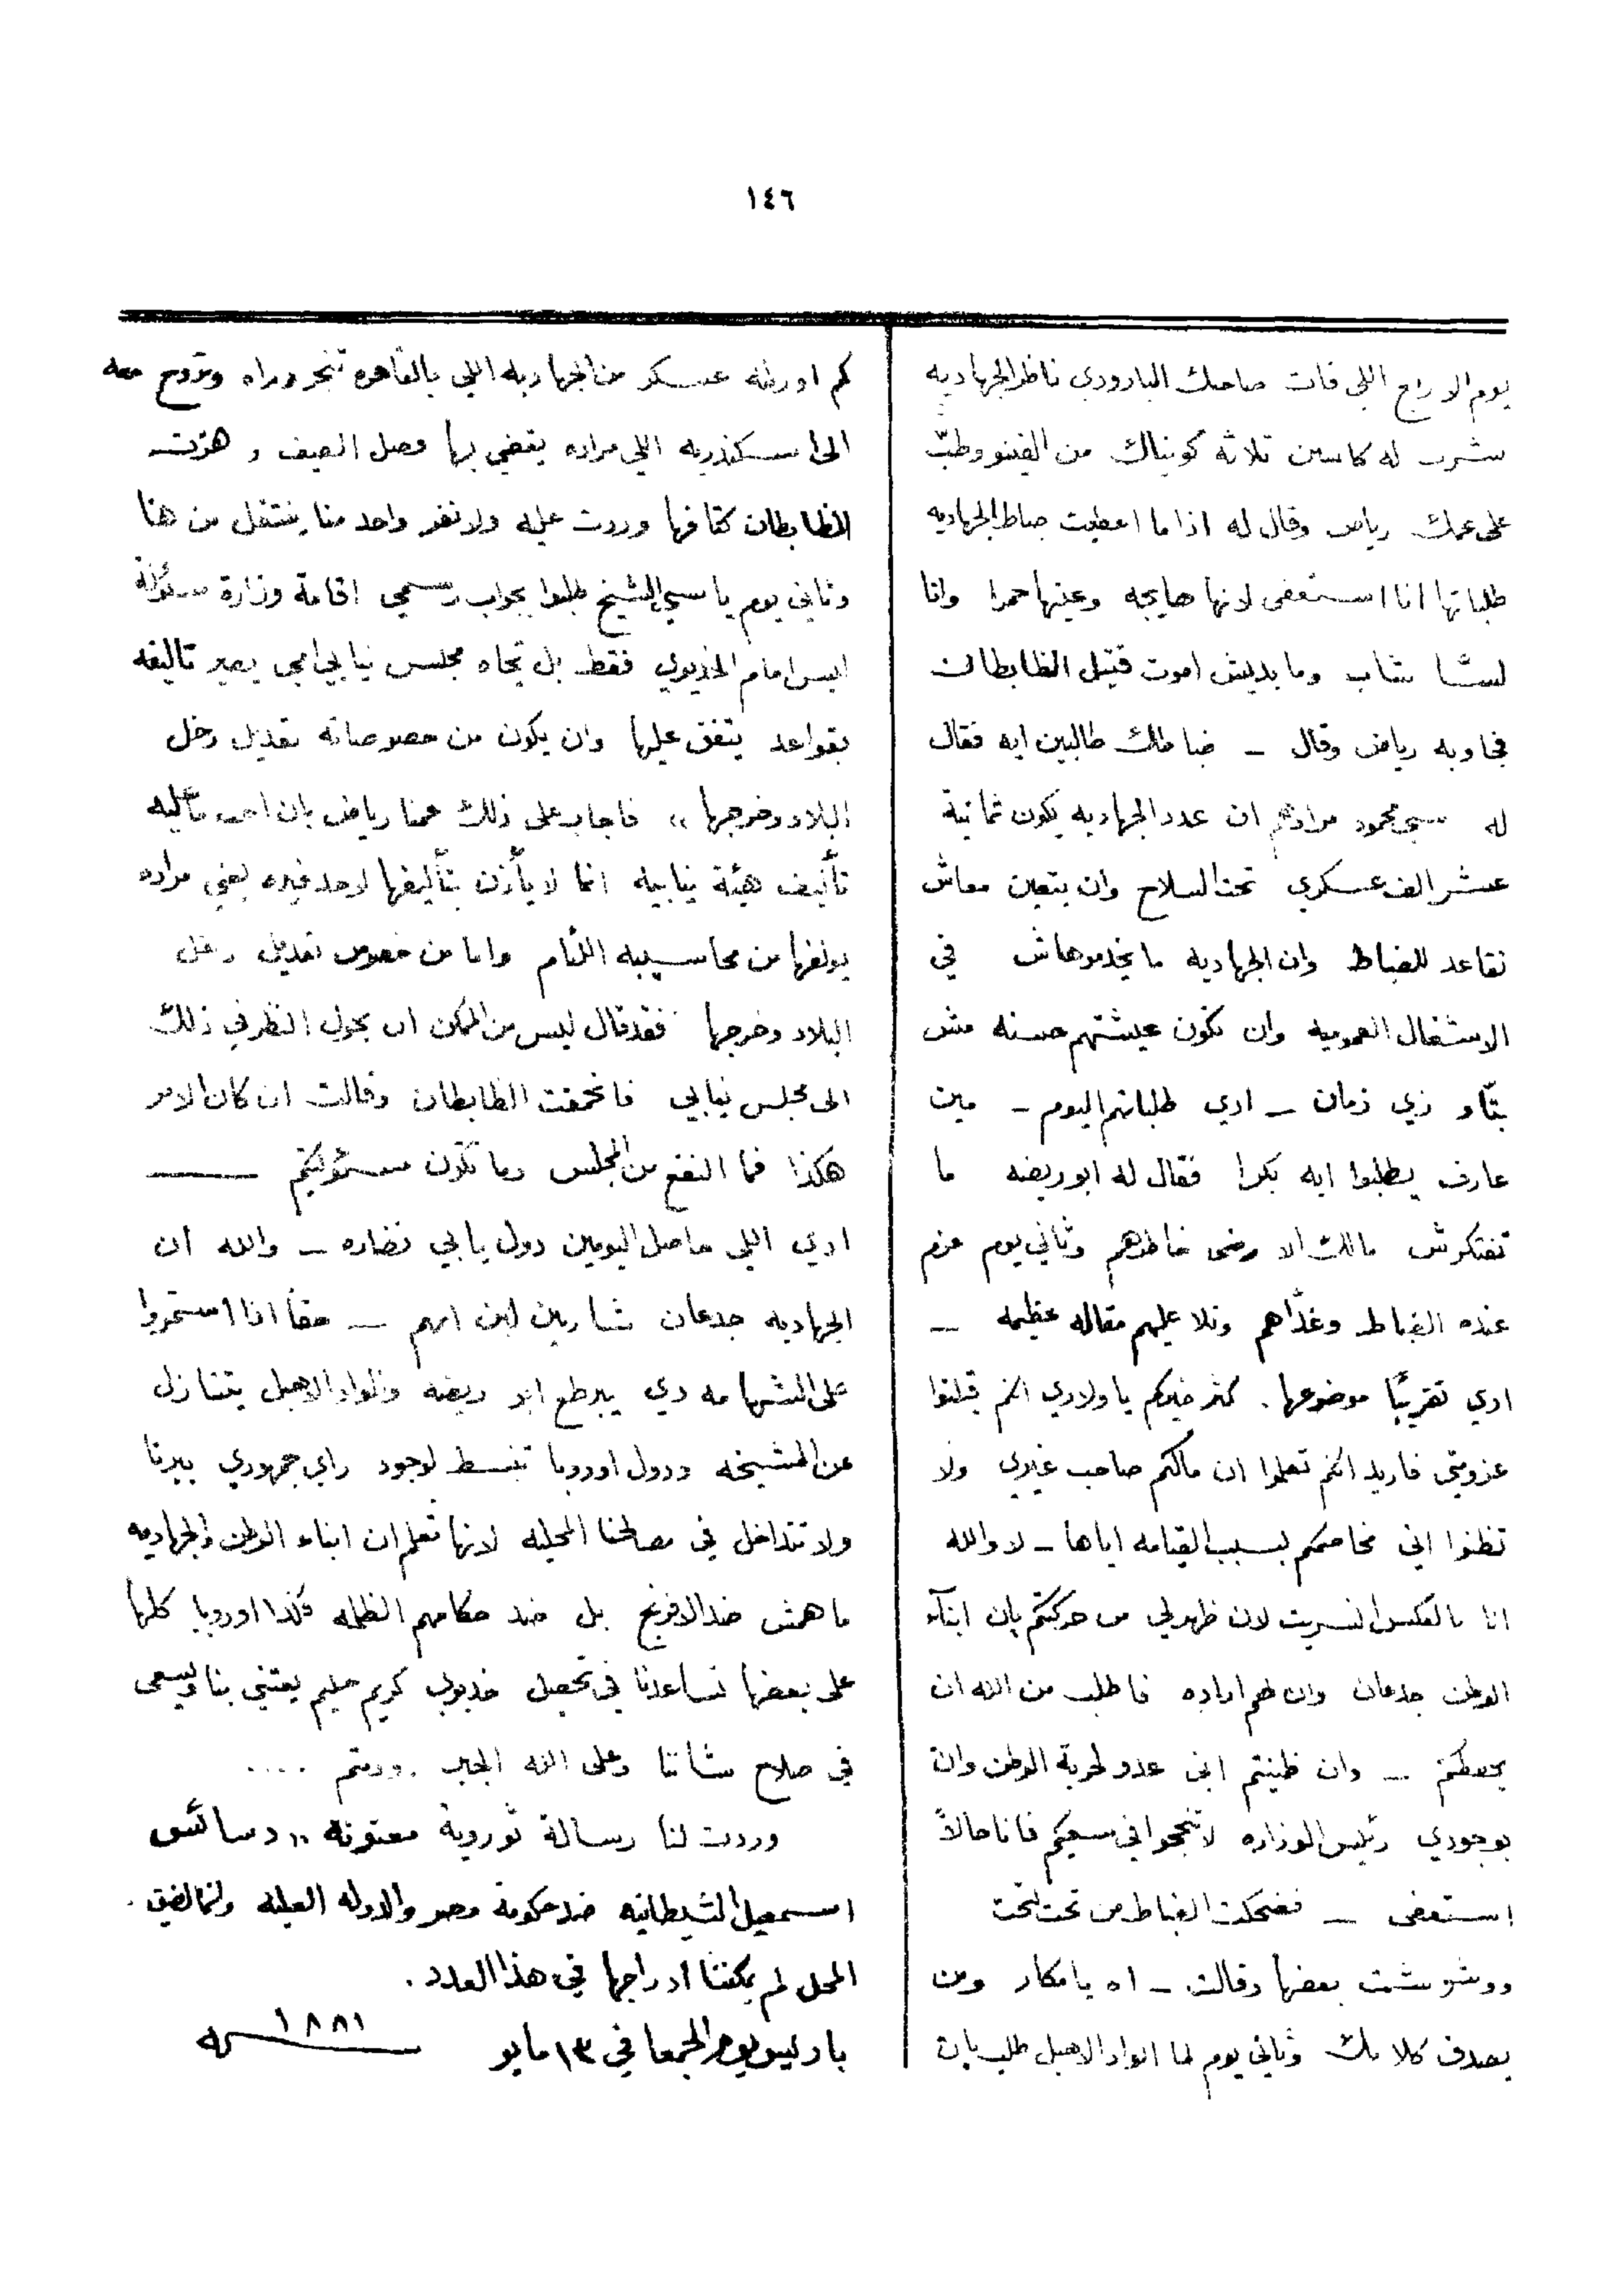 ١٤٦
يوم الاربع اللي فات صاحبك البارودي ناظر الجهاديه
شرب له كاسين تلاثه كونياك من الفينو وطبّ
على عمك رياض وقال له اذا ما اعطيت ضباط الجهاديه
طلباتها انا استعفى لانها هايجه وعينها حمرا وانا
لسّا شاب وما بديش اموت قتيل الظابطان
فجاوبه رياض وقال – ضباطك طالبين ايه فقال
له سي محمود مرادهم ان عدد الجهاديه يكون ثمانية
عشر الف عسكري تحت السلاح وان يتعين معاش
تقاعد للضباط وان الجهاديه ما يخدموهاش في
الاشغال العموميه وان تكون عيشتهم حسنه مش
بتّاو زي زمان – ادي طلباتهم اليوم – مين
عارف يطلبوا ايه بكرا فقال له ابو ريضه ما
تفتكرش مالك الا رضى خاطرهم وثاني يوم عزم
عنده الضباط وغدّاهم وتلا عليهم مقاله عظيمه –
ادي تقريبًا موضوعها . كثر خيركم يا ولادي انكم قبلتوا
عزومتي فاريد انكم تعلموا ان مالكم صاحب غيري ولا
تظنوا اني مخاصمكم بسبب القيامه اياها – لا والله
انا بالعكس انسريت لان ظهر لي من حركتكم بان ابناء
الوطن جدعان وان لهم اراده فاطلب من الله ان
يحفظكم – وان ظنيتم اني عدو لحرية الوطن وان
بوجودي رئيس الوزاره لا تنجحوا في سعيكم فانا حالاً
استعفى – فضحكت الضباط من تحت لتحت
ووشوشت بعضها وقالت – اه يا مكار ومن
يصدق كلامك وثاني يوم لما الواد الاهبل طلب بان
كم اورطه عسكر من الجهاديه اللي بالقاهره تنجر وراه وتروح معه
الى اسكندريه اللي مراده يقضي بها فصل الصيف ، هزّت
الظابطان كتافها وردت عليه ولا نفر واحد منا ينتقل من هنا
وثاني يوم يا سي الشيخ طلبوا بجواب رسمي اقامة وزارة مسئولة
ليس امام الخديوي فقط بل تجاه مجلس نيابي يصير تاليفه
بقواعد يتفق عليها وان يكون من خصوصاته تعديل دخل
البلاد وخرجها ،، فاجاب على ذلك عمنا رياض بان
تأليف هيئة نيابيه انما لا يأذن بتأليفها لاحد غيره يعني مراده
يولفها من محاسيبه اللئام واما من خصوص تعديل دخل
البلاد وخرجها فقد قال ليس من الممكن ان يحول النظر في ذلك
الى مجلس نيابي فانحمقت الظابطان وقالت ان كان الامر
هكذا فما النفع من المجلس وما تكون مسئوليتكم ——
ادي اللي حاصل اليومين دول يا بي نضاره – والله ان
الجهاديه جدعان شاربين لبن امهم – حقًا اذا استمروا
على الشهامه دي يبرطع ابو ريضه والواد الاهبل يتنازل
عن المشيخه ودول اوروبا تنبسط لوجود راي جمهوري ببرنا
ولا تتداخل في مصالحنا المحليه لانها تعلم ان ابناء الوطن والجهاديه
ما همش ضد الافرنج بل ضد حكامهم الظلمه فكذا اوروبا كلها
على بعضها تساعدنا في تحصل خديوي كريم حليم يعتني بنا ويسعى
في صلاح شاننا وعلى الله الجبر . ودمتم ....
وردت لنا رسالة ثوروية معنونه ،، دسائس
اسمعيل الشيطانيه ضد حكومة مصر والدوله العليه ولنما لضيق
المحل لم يمكننا ادراجها في هذا العدد .
باريس يوم الجمعا في ١٣ مايو ١٨٨١